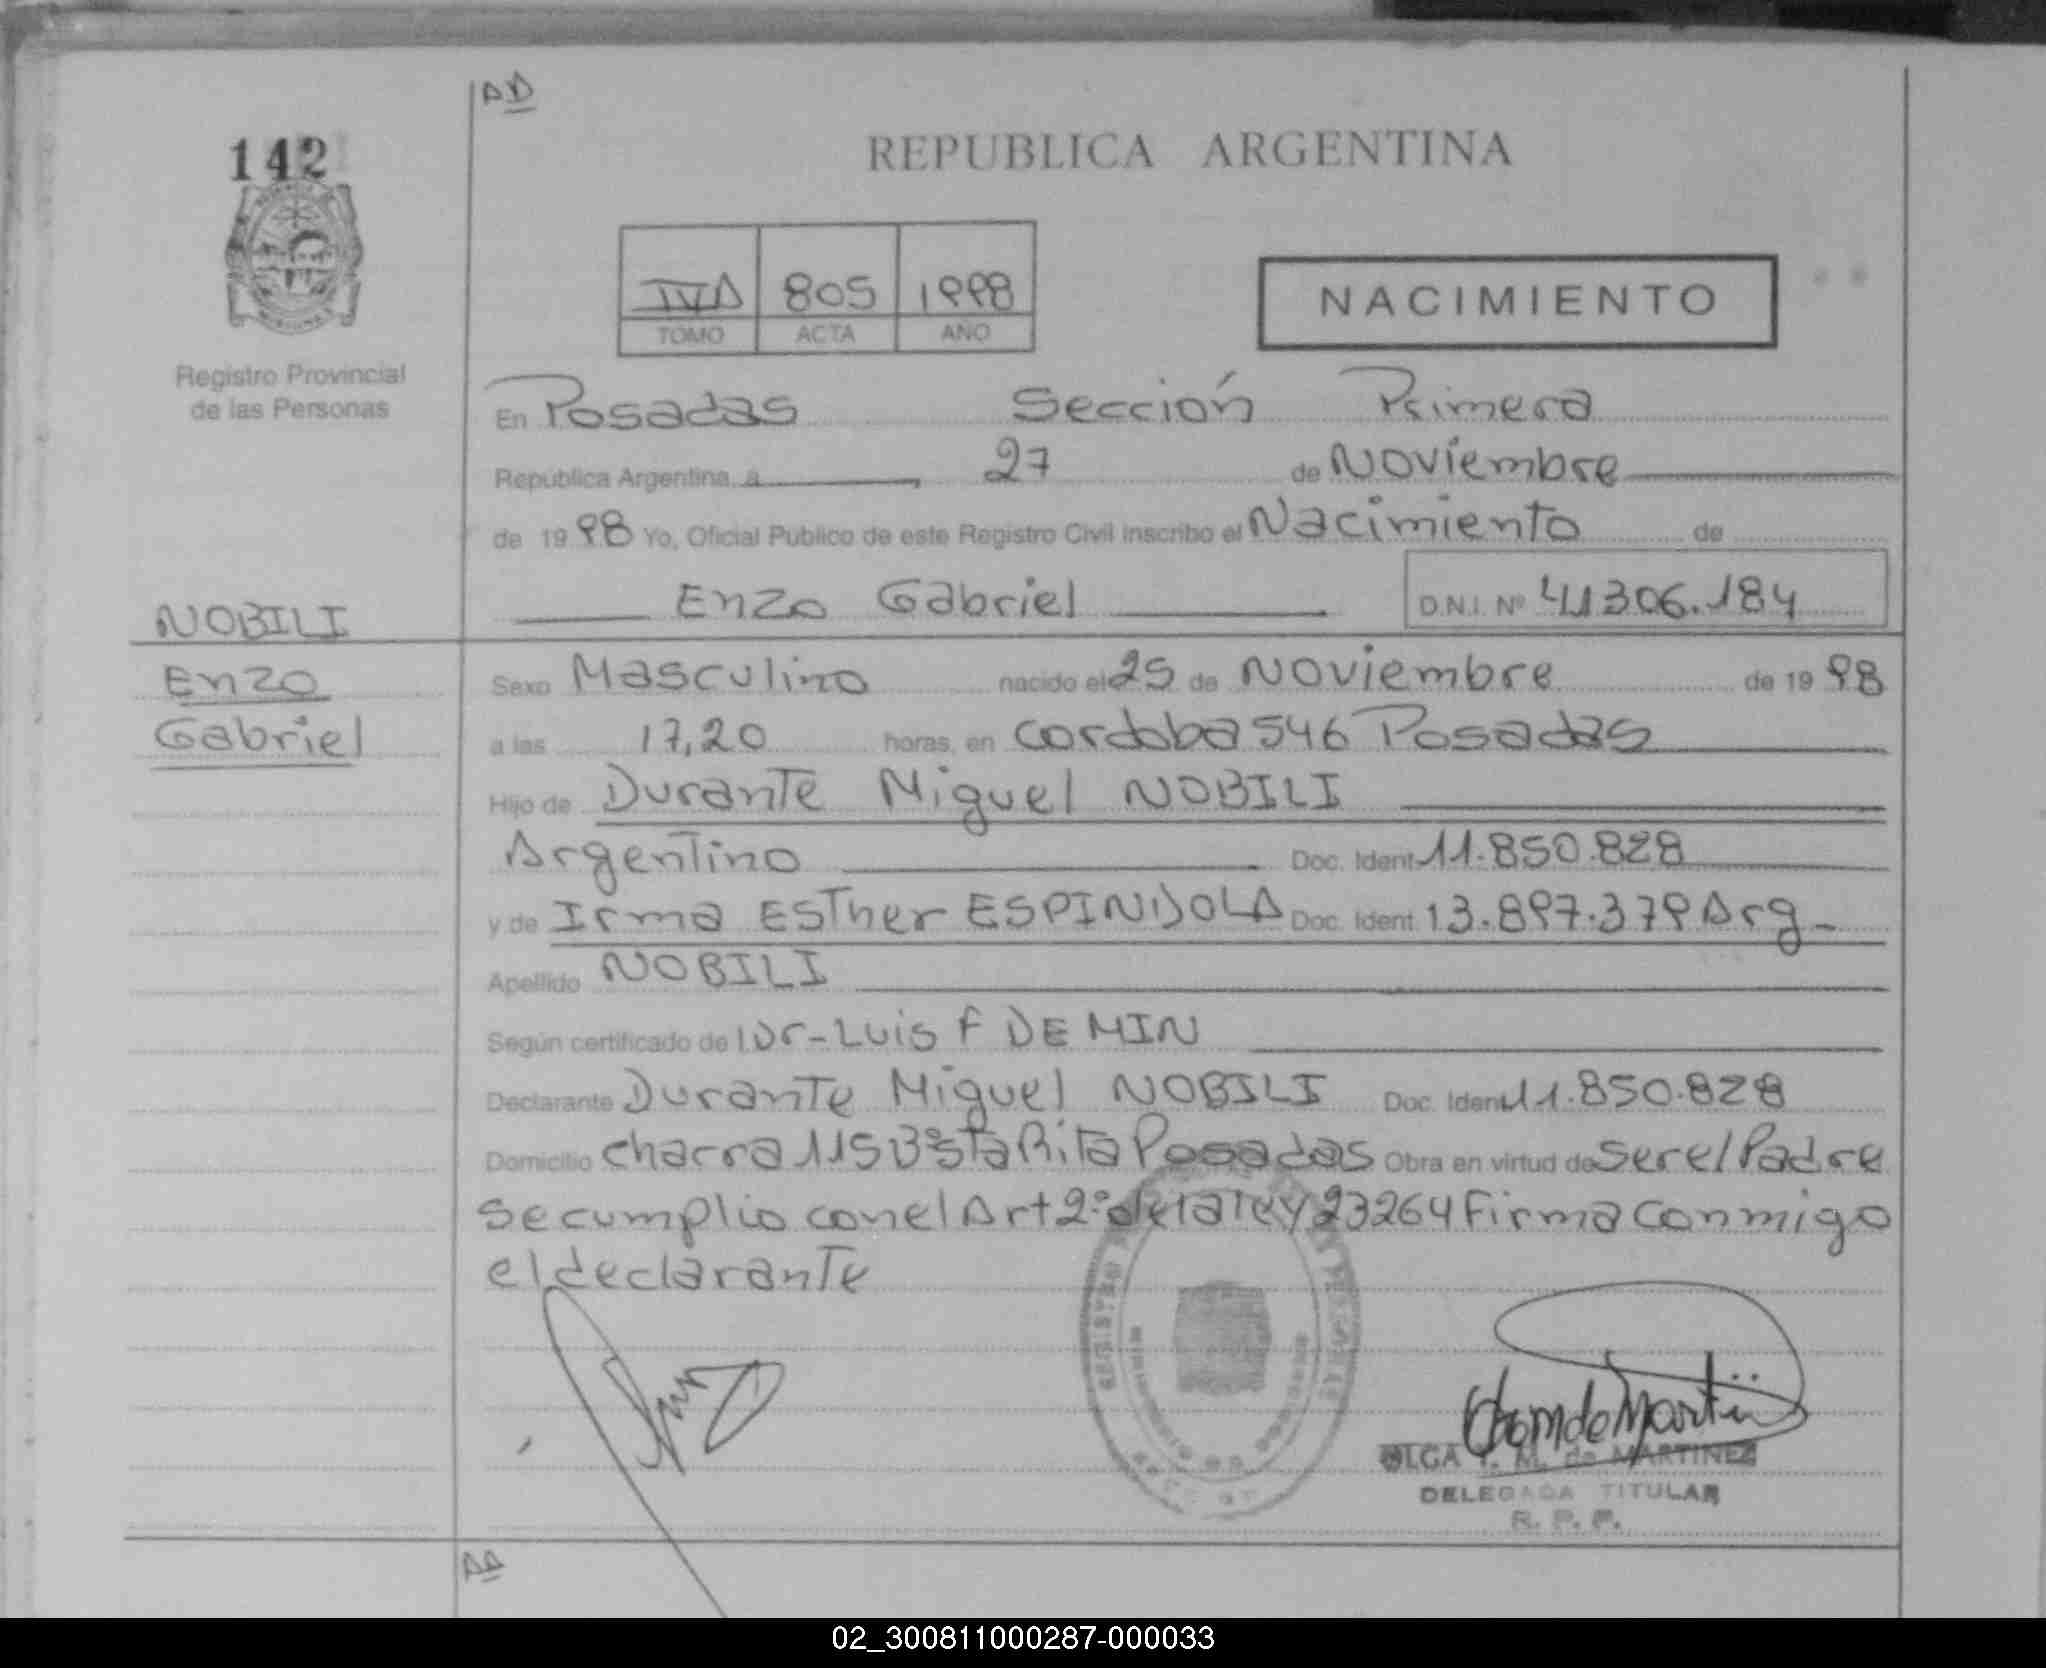 AD
142
REPUBLICA ARGENTINA
IVA 805 1998
TOMO ACTA AÑO
NACIMIENTO
Registro Provincial
de las Personas
En Posadas Sección Primera
Republica Argentina, a 27 de Noviembre
de 1998 Yo, Oficial Publico de este Registro Civil inscribo el Nacimiento de
Enzo Gabriel D.N.I. Nº 41306.184
NOBILI
Enzo
Gabriel
Sexo Masculino nacido el 25 de Noviembre de 1998
a las 17,20 horas, en Cordoba 546 Posadas
Hijo de Durante Miguel NOBILI
Argentino Doc. Ident. 11.850.828
y de Irma Esther ESPINDOLA Doc. Ident. 13.897.379 Arg
Apellido NOBILI
Según certificado de Dr-Luis F DE MIN
Declarante Durante Miguel NOBILI Doc. Ident. 11.850.828
Domicilio Chacra 115 Bº Sta Rita Posadas Obra en virtud de ser el Padre
se cumplio con el Art 2º de la ley 23264 Firma conmigo
el declarante
OLGA M. de MARTINEZ
DELEGADA TITULAR
R. P. P.
AA
02_300811000287-000033